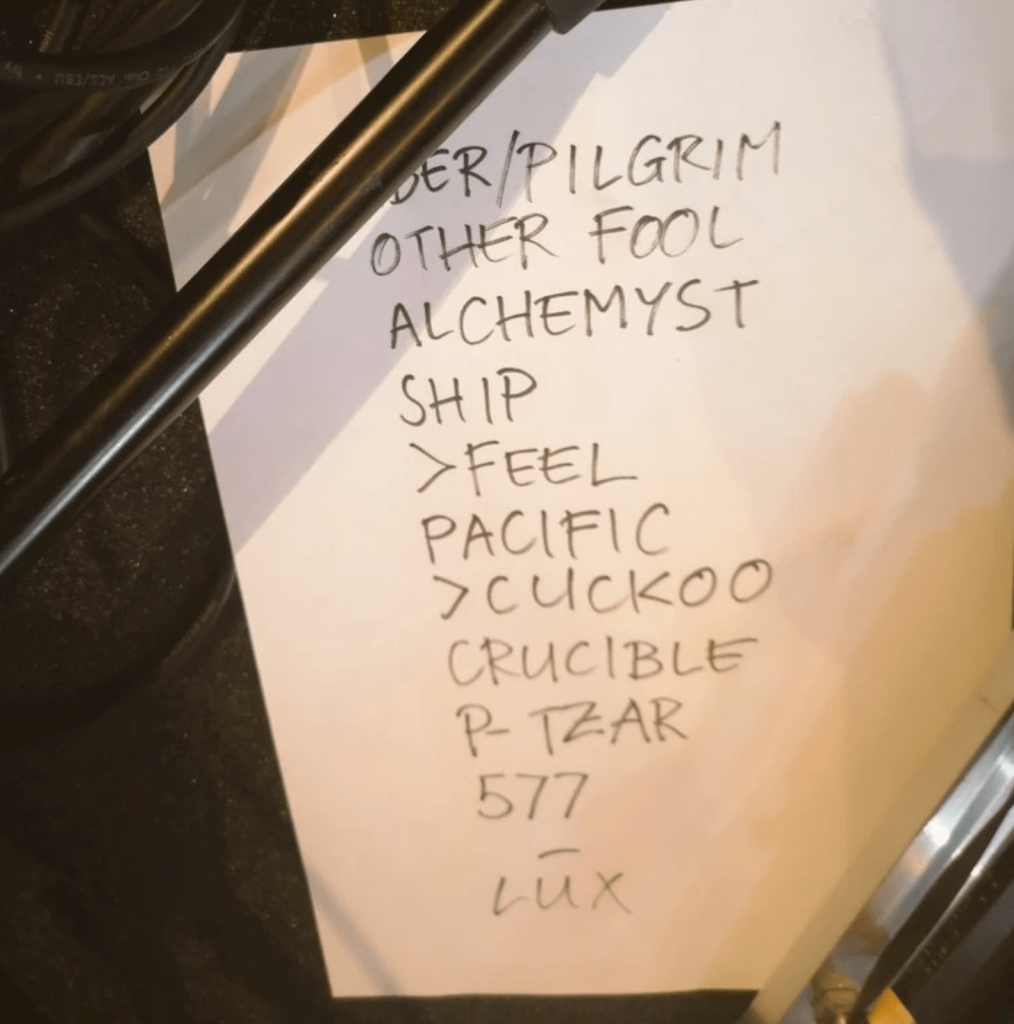 BER/PILGRIM
OTHER FOOL
ALCHEMYST
SHIP
>FEEL
PACIFIC
>CUCKOO
CRUCIBLE
P- TZAR
577
LŪX
AES/EBU